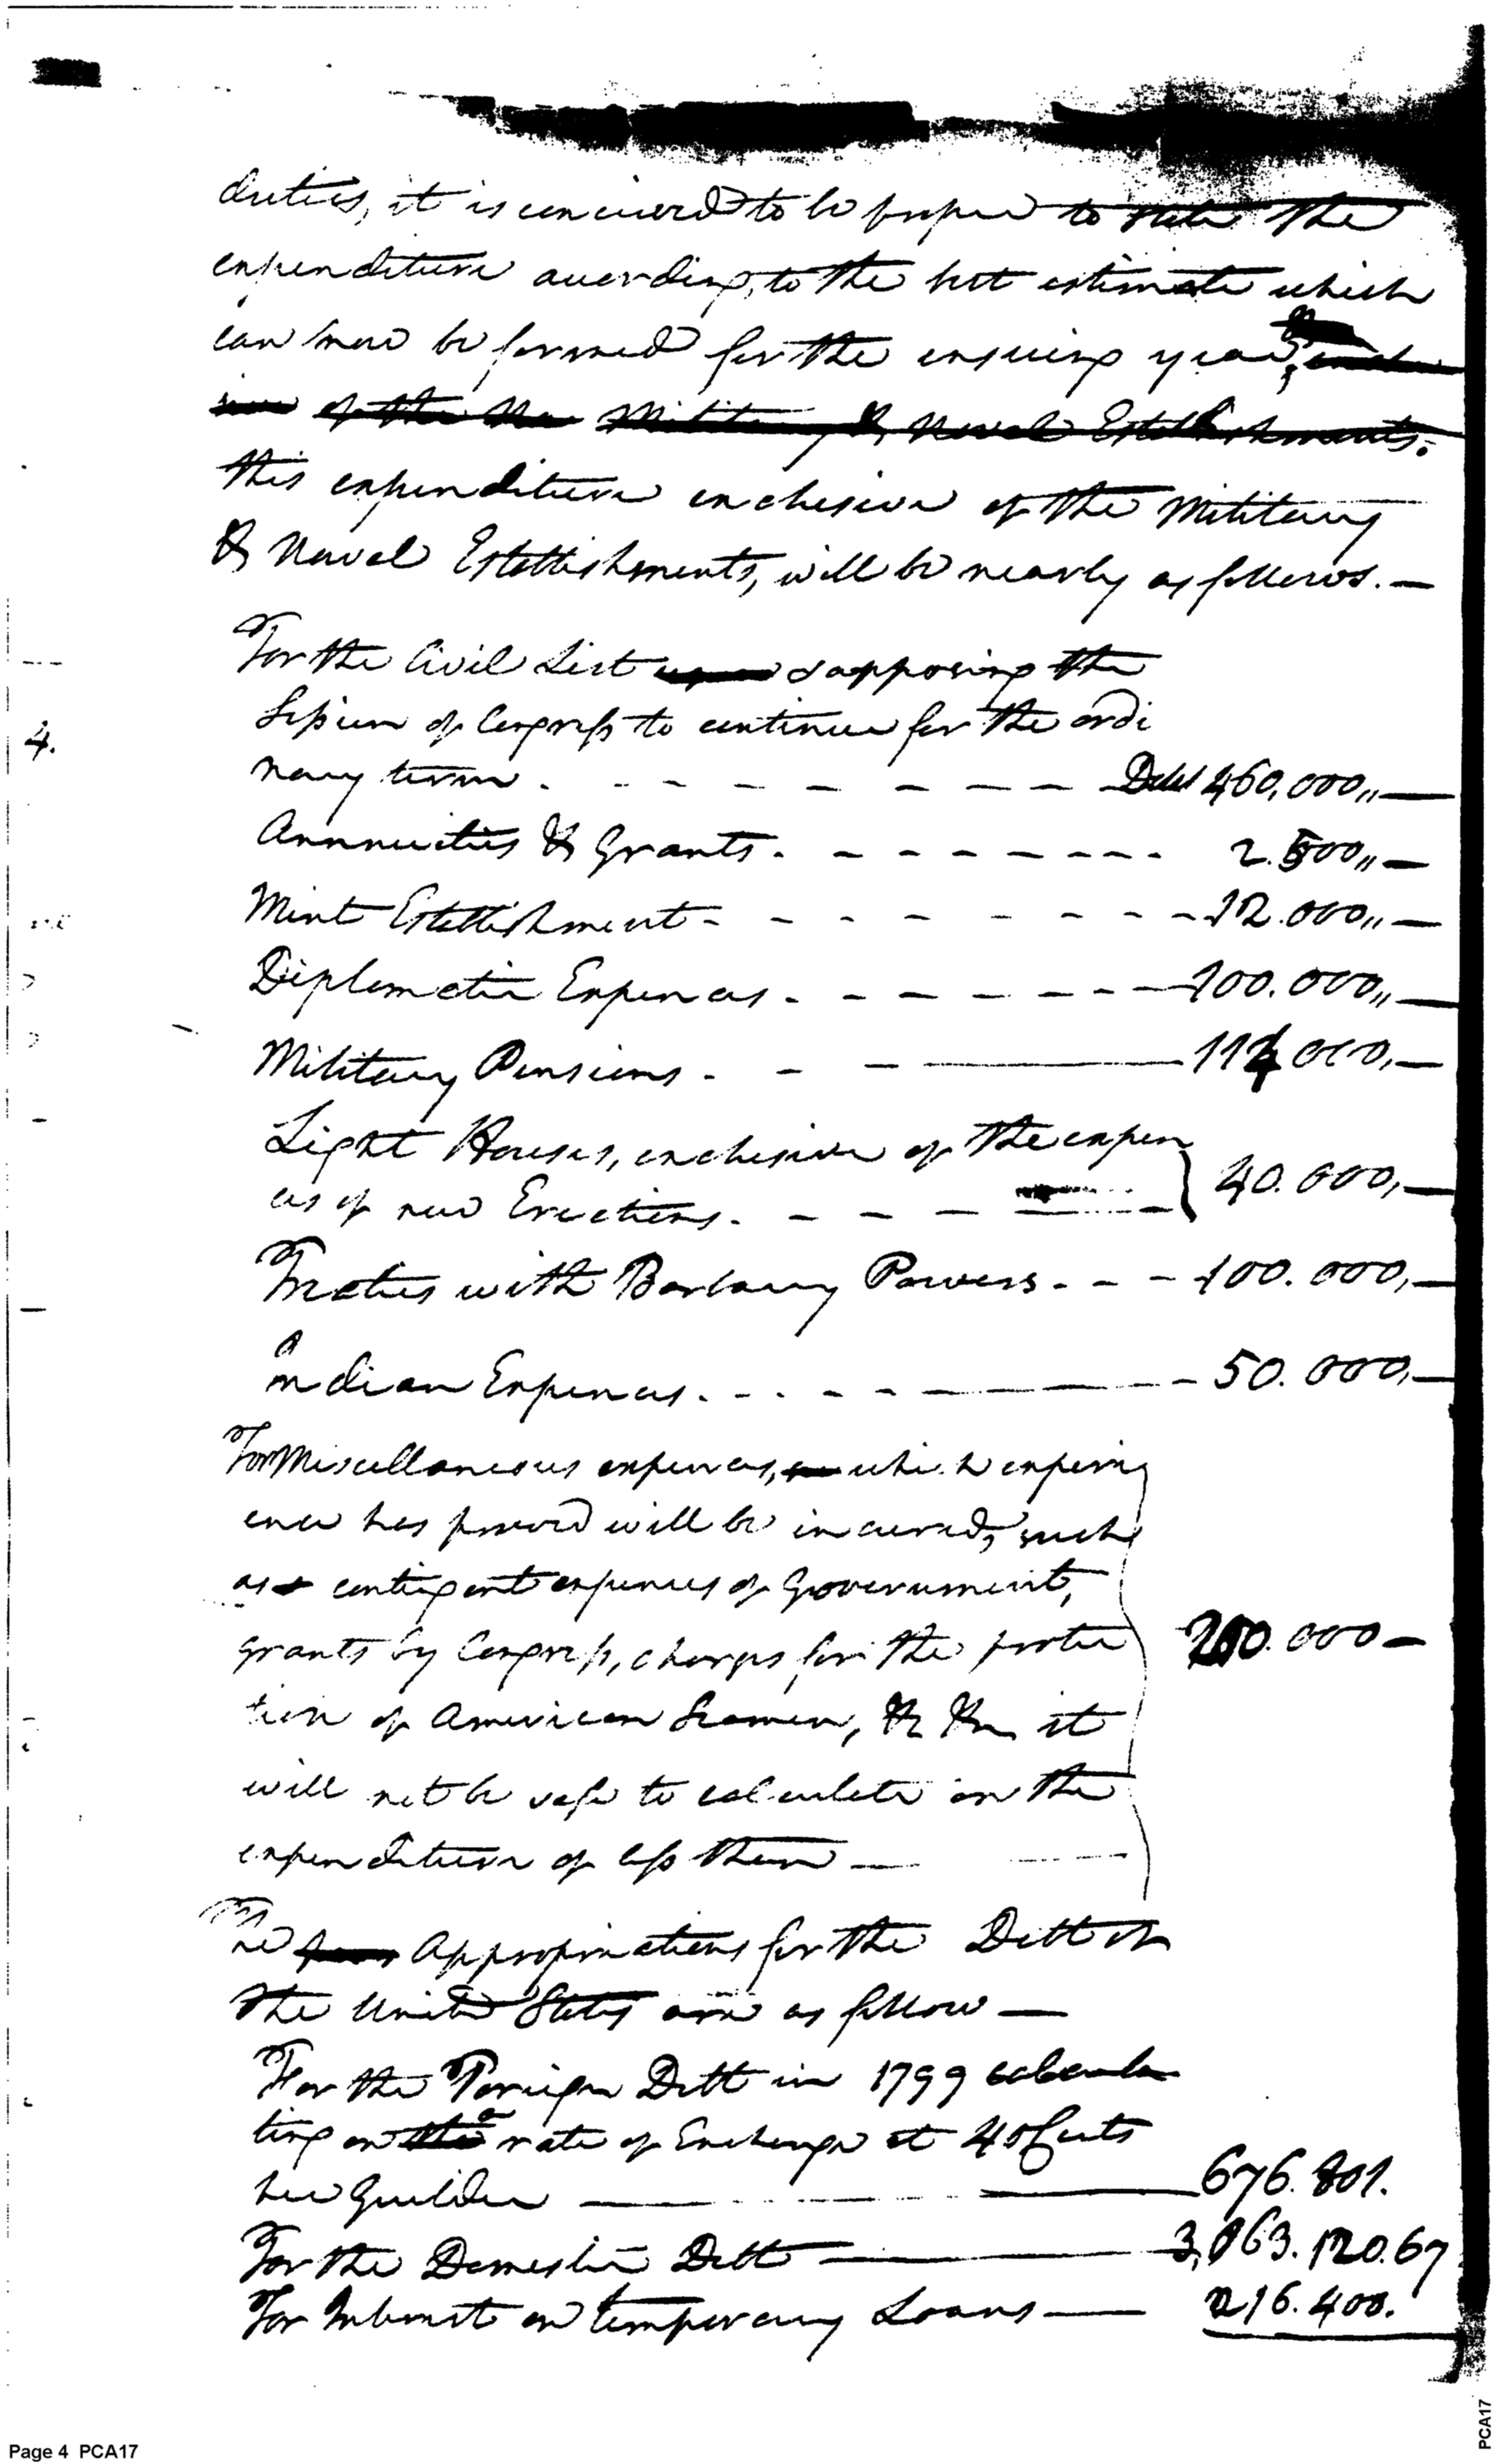 duties, it is conceived to be proper to state the
expenditure according, to the best estimate which
can now be formed for the ensuing year,
of the Military & Naval Establishments.
this expenditure exclusive of the Military
& Naval Establishments, will be nearly as follows. —
For the Civil List supposing the
Session of Congress to continue for the ordi
nary term . - - - - - - - - Doll 460,000,,—
Annuities & Grants. - - - - - - - - 2.500,,—
Mint Establishment - - - - - - - - 12.000,,—
4.
Diplomatic Expences. - - - - - - - 100.000,,—
Military Pensions. - - — 114 000,—
Light Houses, exclusive of the expen
ces of new Erections. - - - - 40.000,—
Treaties with Barbary Powers. - - - 100.000,—
Indian Expences. - - - - - — 50.000,—
For Miscellaneous expences, which experi
ence has proved will be incurred, such
as contingent expences of Government,
grants by Congress, charges for the protec
200.000—
tion of American Seamen, &c &c it
will not be safe to calculate on the
expenditure of less than —
The Appropriations for the Debt of
the United States are as follow —
For the Foreign Debt in 1799 calcula
ting on a rate of Exchange at 40 Cents
per Guilder — 676.801.
For the Domestic Debt — 3,063.120.67
For Interest on temporary Loans — 216.400.
Page 4 PCA17
PCA17